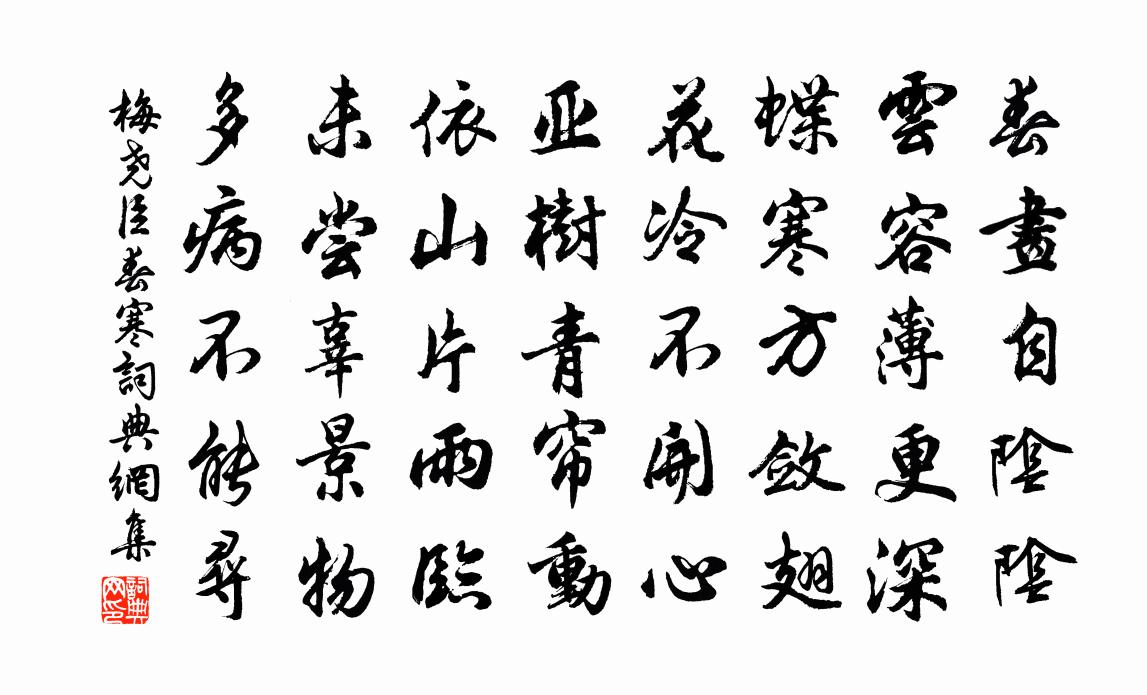 春晝自陰陰
雲容薄更深
蝶寒方斂翅
花冷不開心
亚樹青帘動
依山片雨臨
未嘗辜景物
多病不能尋
梅尧臣春寒詞典網集
詞典
网印